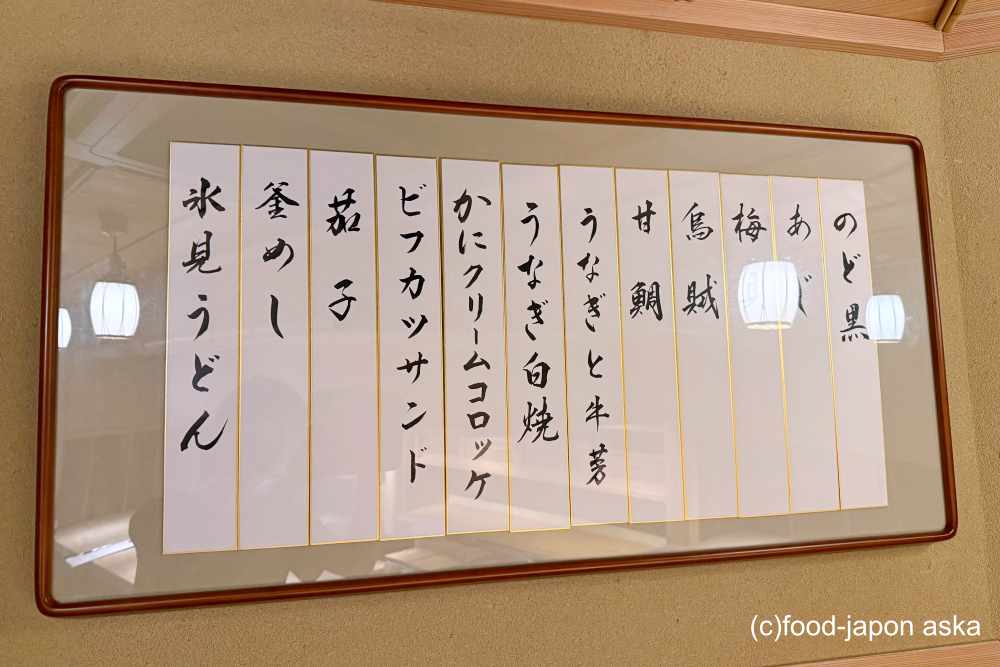 のど黒
あじ
梅
烏賊
甘鯛
うなぎと牛蒡
うなぎ白焼
かにクリームコロッケ
ビフカツサンド
茄子
釜めし
氷見うどん
(c)food-japon aska